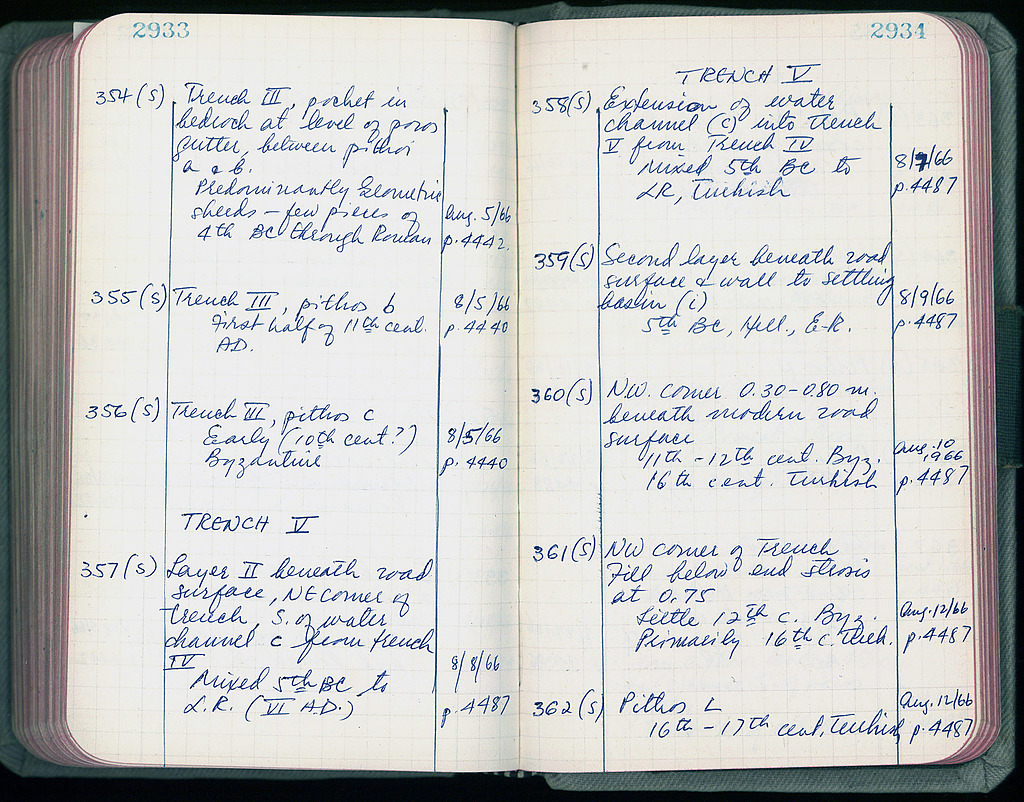 2933
354(S) Trench III, pocket in
bedrock at level of poros
gutter, between pithoi
a & b.
Predominantly Geometric
sherds – few pieces of Aug. 5/66
4th BC through Roman p. 4442.
355(S) Trench III, pithos b 8/5/66
First half of 11th cent. p. 4440
AD.
356(S) Trench III, pithos c
Early (10th cent.?) 8/5/66
Byzantine p. 4440
TRENCH V
357(S) Layer II beneath road
surface, NE corner of
trench, S. of water
channel c from trench
IV 8/8/66
Mixed 5th BC to
L.R. (VI A.D.) p. 4487
2934
TRENCH V
358(S) Extension of water
channel (c) into Trench
V from Trench IV 8/9/66
Mixed 5th BC to p. 4487
LR, Turkish
359(S) Second layer beneath road
surface & wall to settling
basin (i) 8/9/66
5th BC, Hell., E-R. p. 4487
360(S) N.W. Corner 0.30–0.80 m.
beneath modern road
surface Aug. 10
11th – 12th cent. Byz. 1966
16th cent. Turkish p. 4487
361(S) NW corner of Trench
Fill below end strosis
at 0.75
Little 12th c. Byz. Aug. 12/66
Primarily 16th c. Turk. p. 4487
362(S) Pithos L Aug. 12/66
16th – 17th cent. Turkish p. 4487